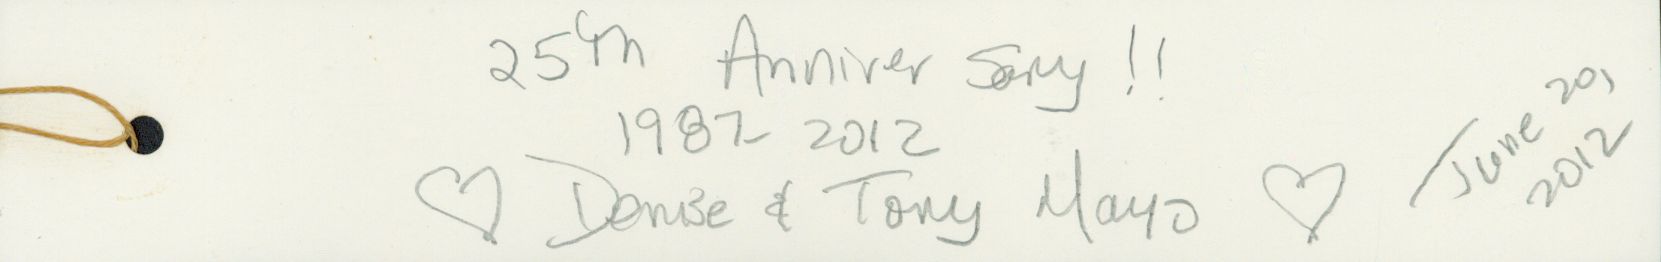 25th Anniversary!!
1987-2012
Denise & Tony Mayo
June 20,
2012